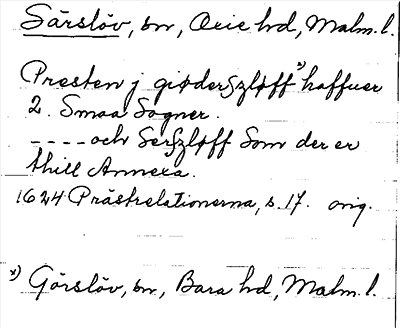 Särslöv, sn, Oxie hd, Malm. l.
Presten j giøderszløff x) haffuer
2. Smaa Sogner.
- - - - - och Serszløff Som der er
thill Annexa.
1624 Prästrelationerna, s. 17. orig.
x) Görslöv, sn, Bara hd, Malm. l.